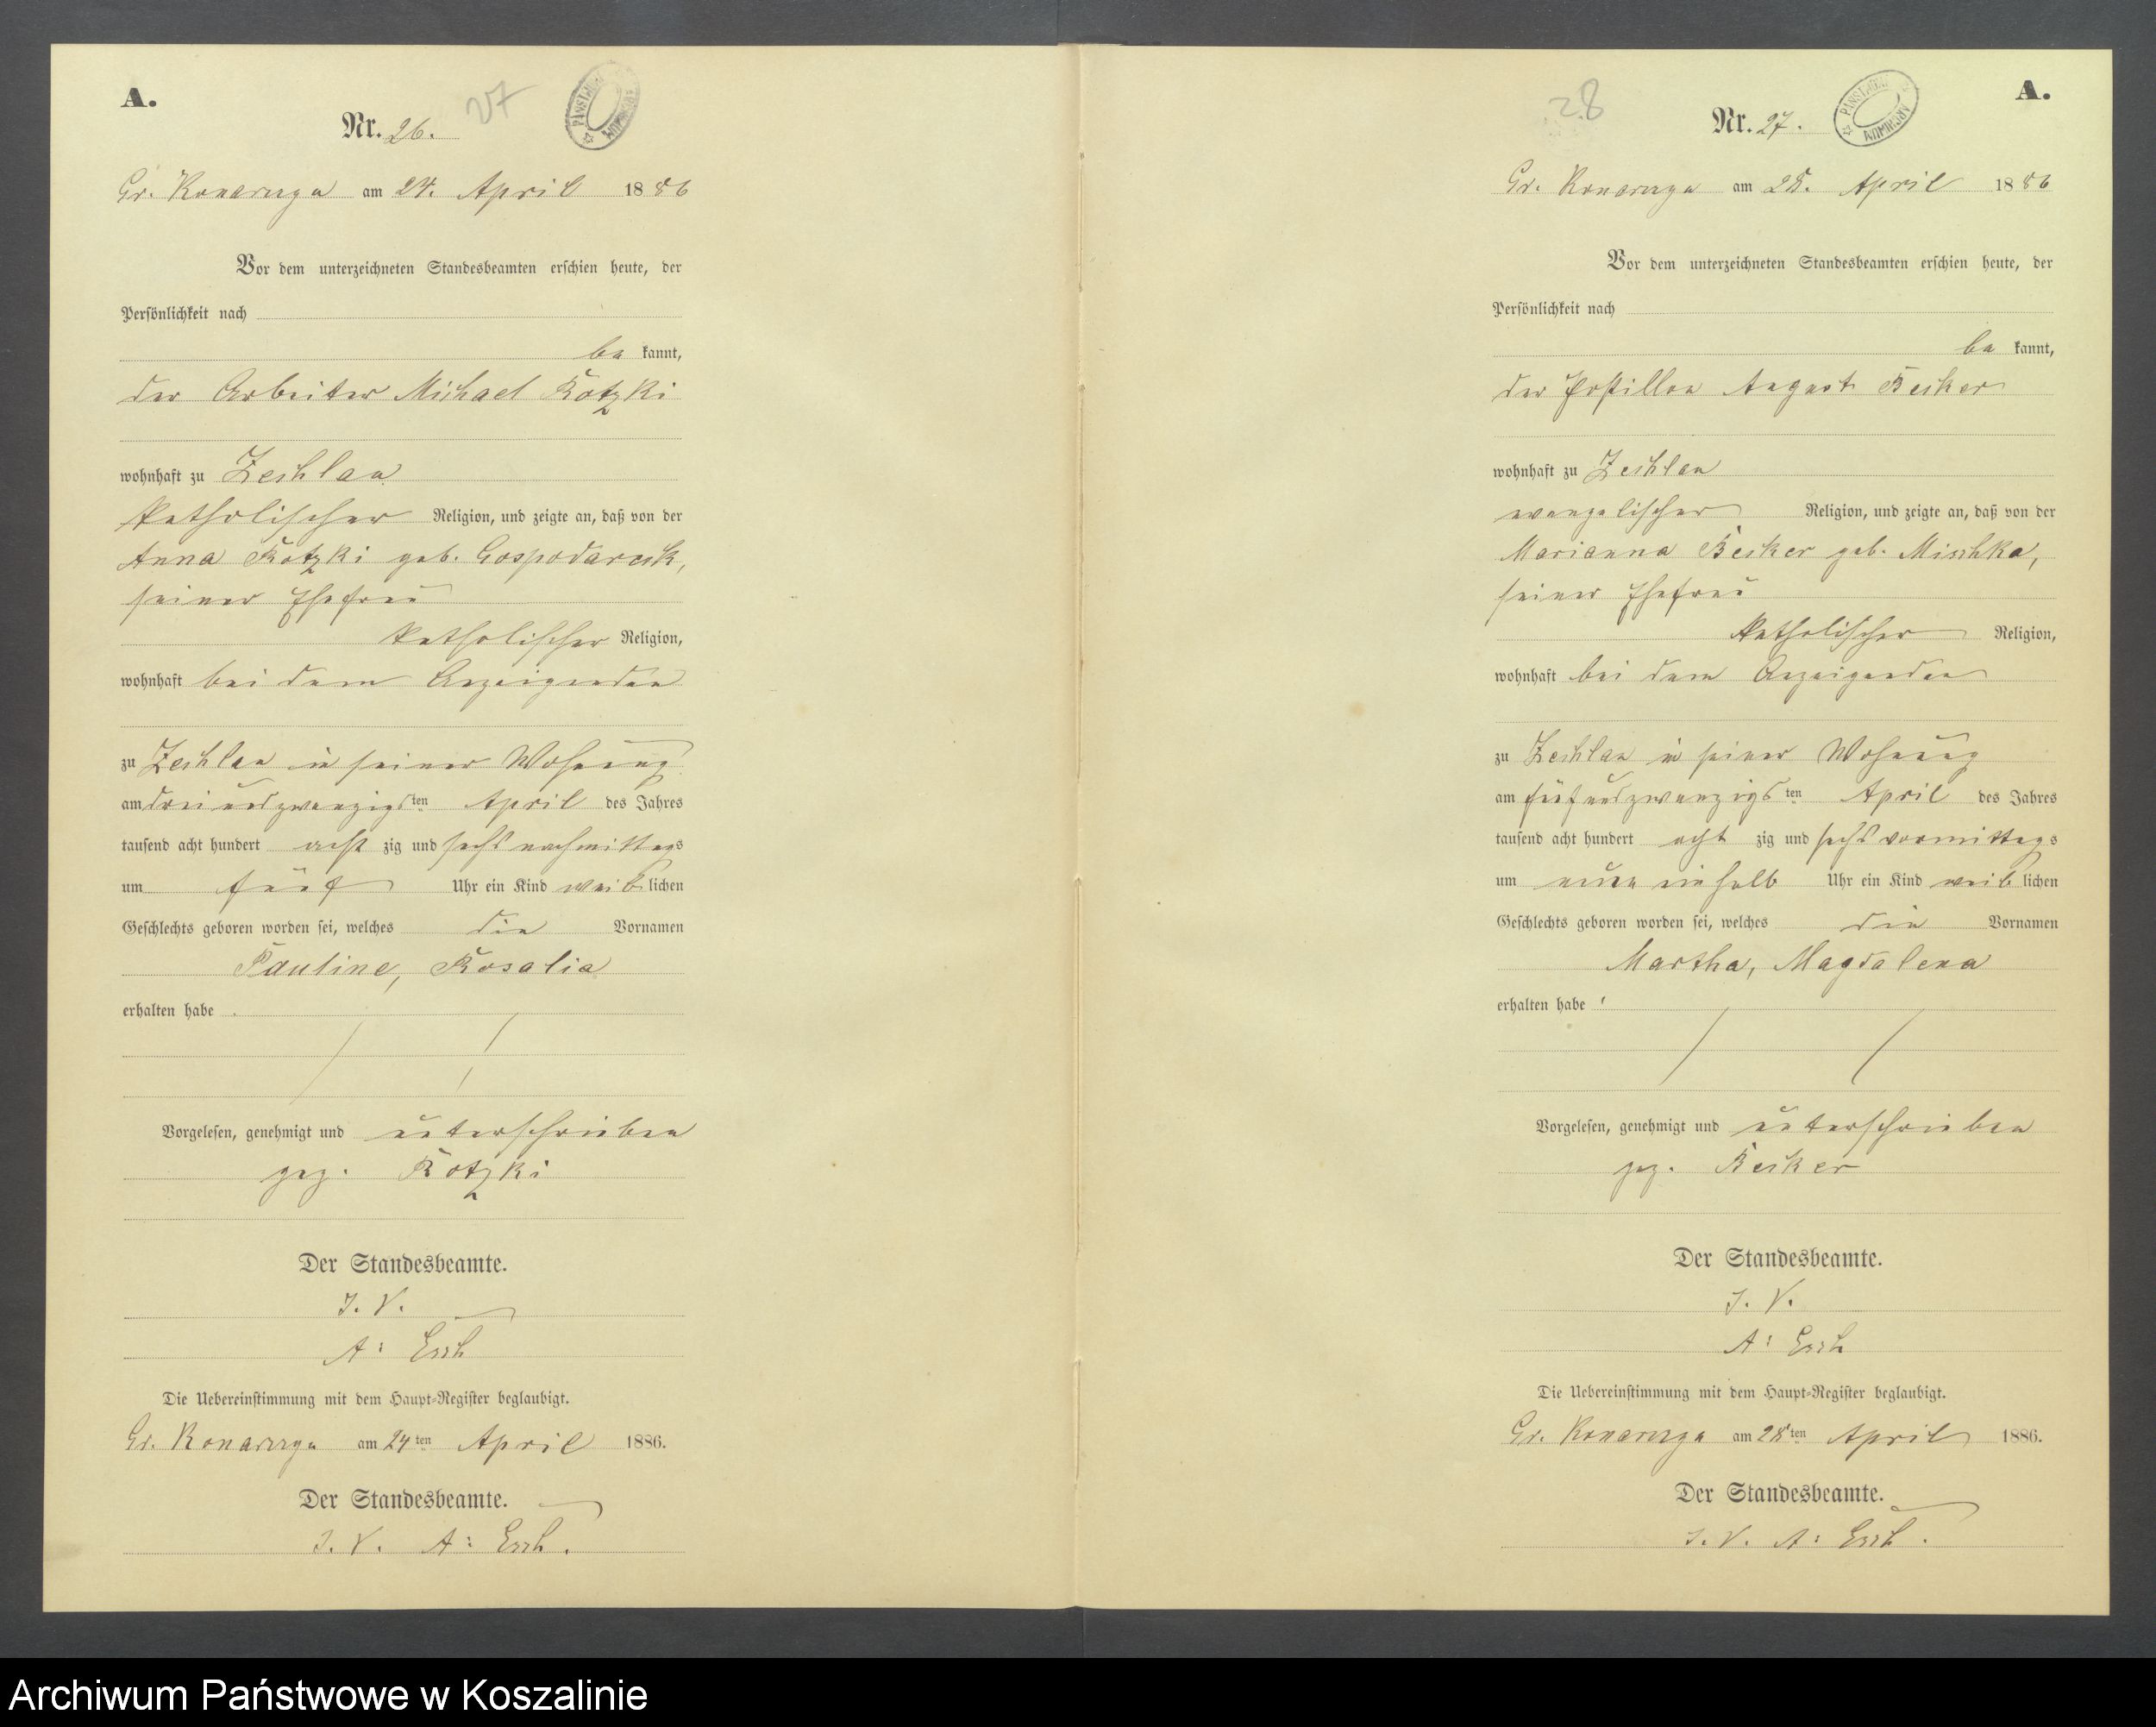 A.
Nr. 26.
27
Gr. Konarczyn am 24. April 1886
Vor dem unterzeichneten Standesbeamten erschien heute, der
Persönlichkeit nach
be kannt,
der Arbeiter Michael Kotzki
wohnhaft zu Zechlau
katholischer Religion, und zeigte an, daß von der
Anna Kotzki geb. Gospodarek,
seiner Ehefrau
katholischer Religion,
wohnhaft bei dem Anzeigenden
zu Zechlau in seiner Wohnung
am dreiundzwanzigsten April des Jahres
tausend acht hundert acht zig und sechs nachmittags
um fünf Uhr ein Kind weib lichen
Geschlechts geboren worden sei, welches die Vornamen
Pauline, Rosalia
erhalten habe.
Vorgelesen, genehmigt und unterschrieben
gez. Kotzki
Der Standesbeamte.
I. V.
A: Esch
Die Uebereinstimmung mit dem Haupt-Register beglaubigt.
am 24ten April 1886.
Der Standesbeamte.
I. V. A: Esch.
A.
28
Nr. 27.
PANSTWOWE ARCHIWUM
am 28. April 1886
Vor dem unterzeichneten Standesbeamten erschien heute, der
Persönlichkeit nach
be kannt,
der Postillon August Becker
wohnhaft zu Zechlau
evangelischer Religion, und zeigte an, daß von der
Marianna Becker geb. Mischka,
seiner Ehefrau
katholischer Religion,
wohnhaft bei dem Anzeigenden
zu Zechlau in seiner Wohnung
am fünfundzwanzigsten April des Jahres
tausend acht hundert acht zig und sechs vormittags
um neun ein halb Uhr ein Kind weib lichen
Geschlechts geboren worden sei, welches die Vornamen
Martha, Magdalena
erhalten habe
Vorgelesen, genehmigt und unterschrieben
gez. Becker
Der Standesbeamte.
I. V.
A: Esch
Die Uebereinstimmung mit dem Haupt-Register beglaubigt.
am 28ten April 1886.
Der Standesbeamte.
I. V. A: Esch.
Archiwum Państwowe w Koszalinie